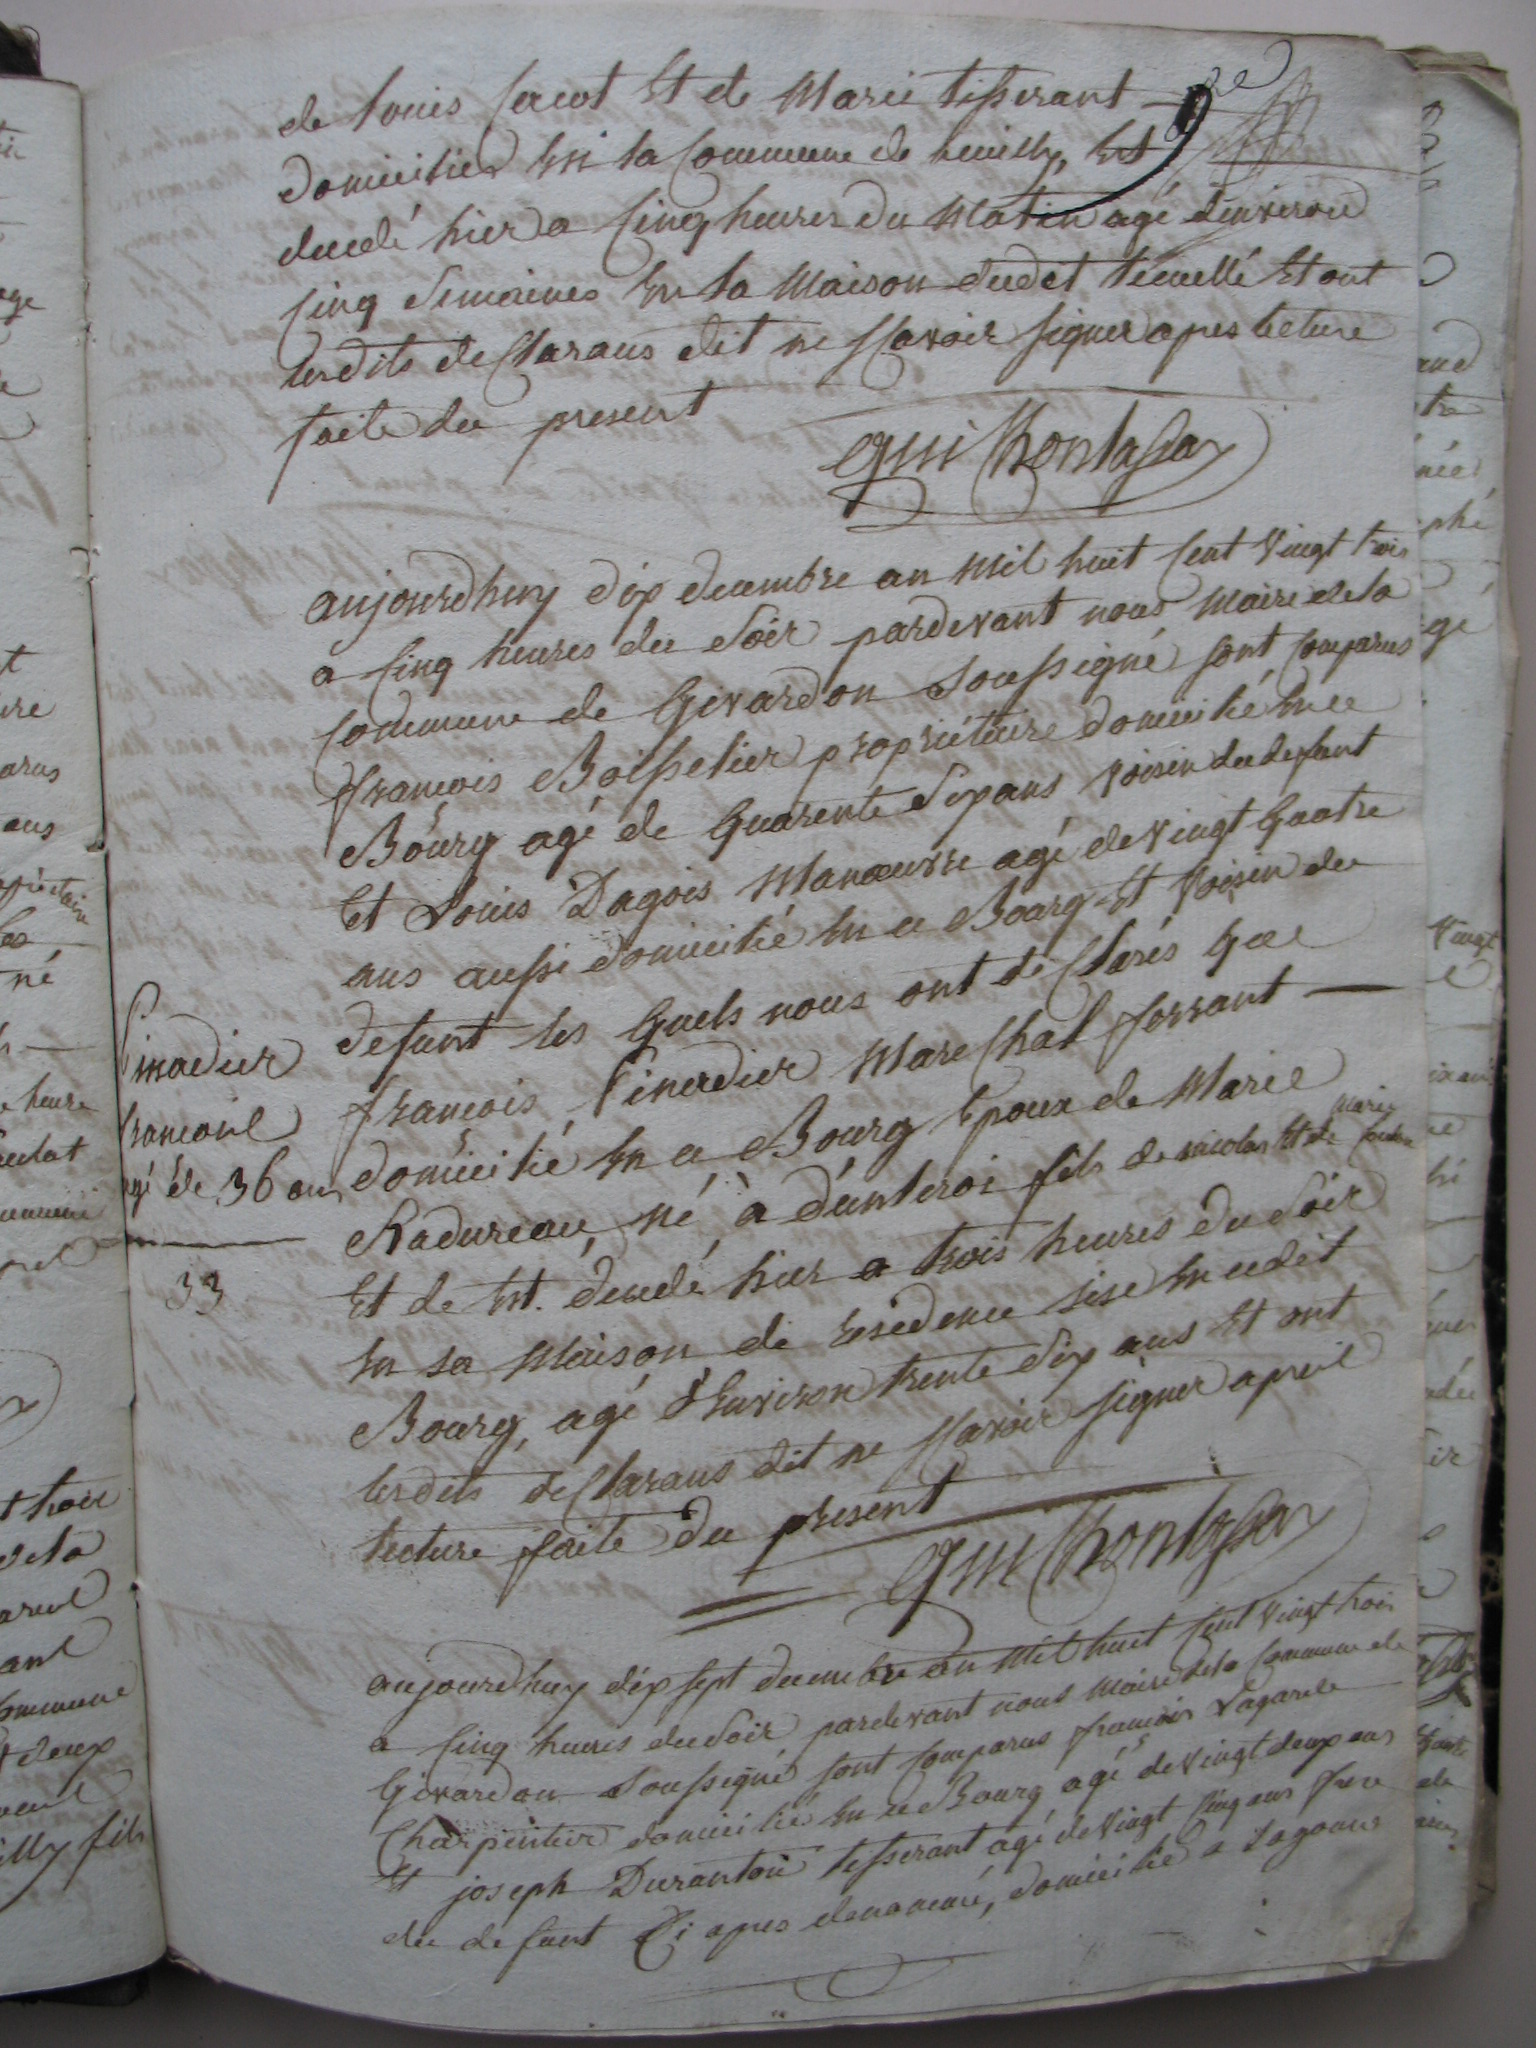 de Louis Jacot Et de Marie tisserant
domicilier En la Commune de Neuilly, Est
decedé hier a Cinq heures du Matin agé denviron
Cinq Semaines En la Maison dudit Et ont
lesdits desClarans dit ne sCavoir signer apres lecture
faite du present
aujourdhuy dix decembre an Mil huit Cent Vingt trois
a Cinq heures du Soir pardevant nous Maire de la
Commune de Givardon Soussigné sont Comparus
francois Boisselier propriétaire domicilié En ce
Bourg agé de Quarente Six ans Voisin du defunt
Et Louis Dagois Manœuvre agé de Vingt Quatre
ans aussi domicilié En ce Bourg Et Voisin du
defunt les Quels nous ont deClarés Que
francois Pinadier MareChal ferrant
domicilié En ce Bourg Epoux de Marie
Radureau, né à fils de nicolas Et de Marie
Et de Est. decedé hier a trois heures du Soir
En sa Maison de residence sise En cedit
Bourg, agé d'Environ trente Six ans Et ont
lesdits desClarans dit ne sCavoir signer apres
lecture faite du present
Pinadier
francois
agé de 36 ans
33
aujourdhuy dix sept decembre an Mil huit Cent Vingt trois
a Cinq heures du Soir pardevant nous Maire de la Commune de
Givardon Soussigné sont Comparus francois Lagarde
Charpentier domicilié En ce Bourg agé de Vingt deux ans
Et joseph Duranton tisserant agé de Vingt Cinq ans frere
du defunt Ci apres denommé, domicilié a Sagonne